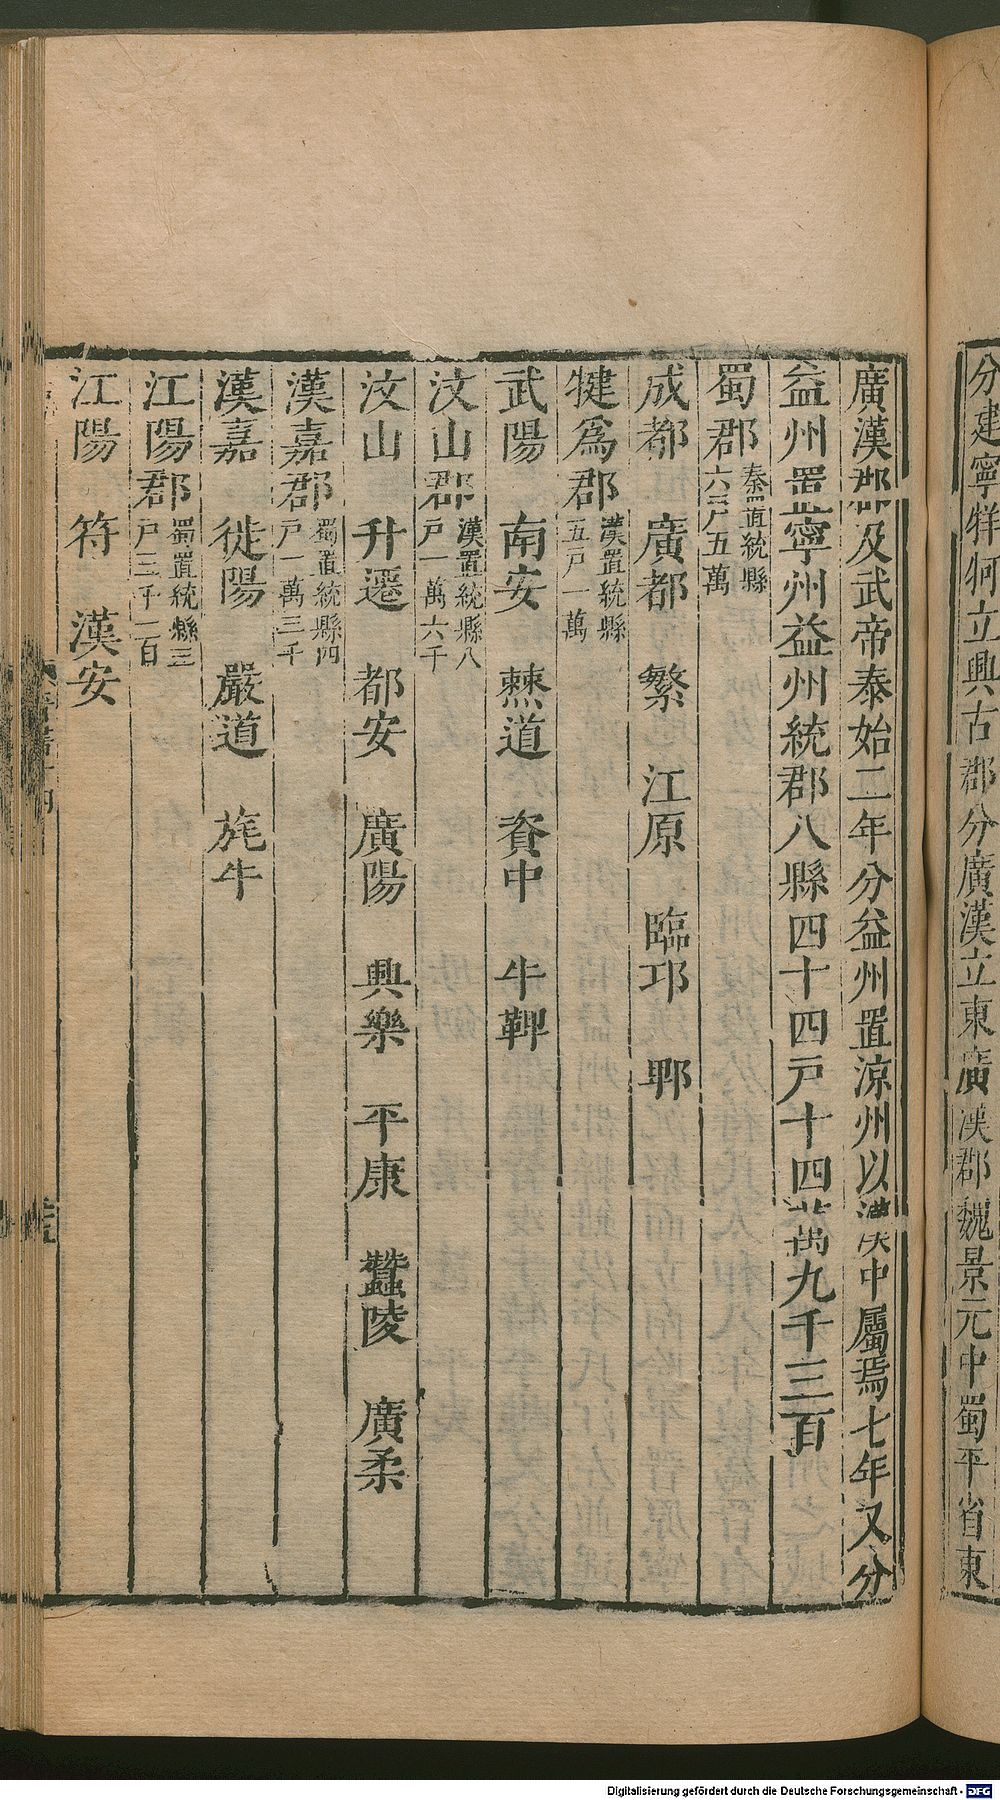 分建寧牂牁立興古郡分廣漢立東廣漢郡魏景元中蜀平省東
廣漢郡及武帝泰始二年分益州置涼州以漢中屬焉七年又分
益州置寧州益州統郡八縣四十四戶十四萬九千三百
蜀郡秦置統縣
六戶五萬
成都　廣都　繁　江原　臨邛　郫
犍爲郡漢置統縣
五戶一萬
武陽　南安　僰道　資中　牛鞞
汶山郡漢置統縣八
戶一萬六千
汶山　升遷　都安　廣陽　興樂　平康　蠶陵　廣柔
漢嘉郡蜀置統縣四
戶一萬三千
漢嘉　徙陽　嚴道　旄牛
江陽郡蜀置統縣三
戶三千一百
江陽　符　漢安
Digitalisierung gefördert durch die Deutsche Forschungsgemeinschaft - DFG